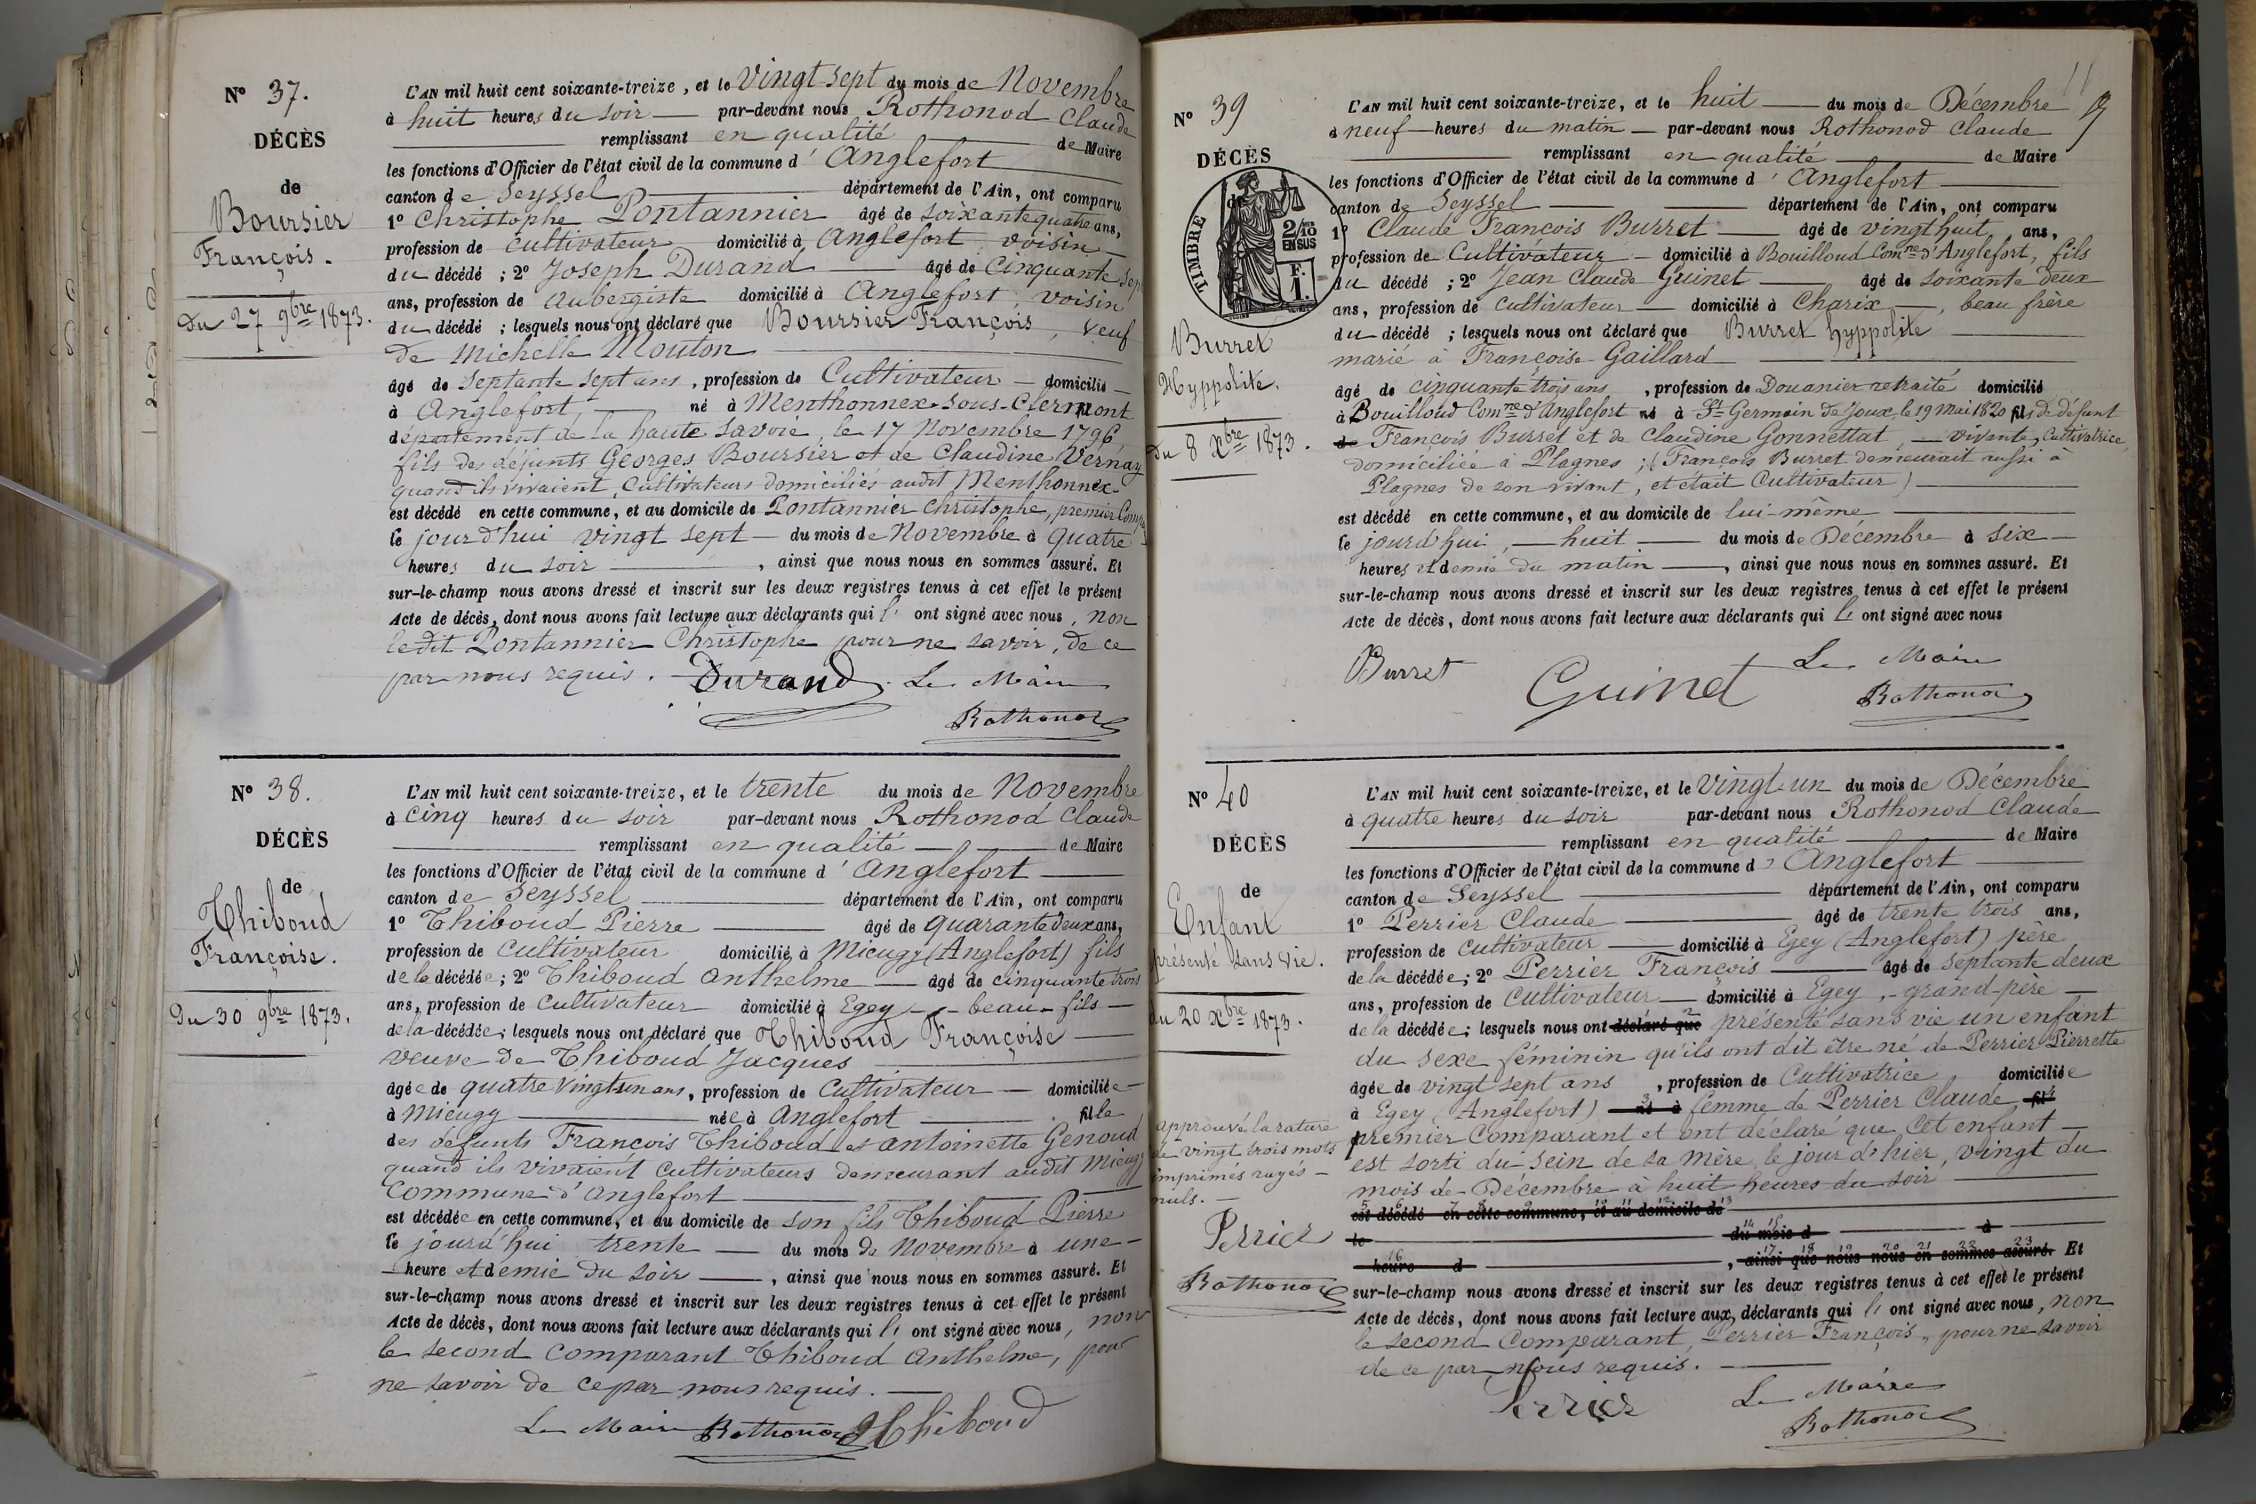 N° 37.
DÉCÈS
de
Boursier
François.
Du 27 9bre 1873.
L'AN mil huit cent soixante-treize, et le Vingt-sept du mois de Novembre
à huit heures du soir par-devant nous Rothonod Claude
remplissant en qualité de Maire
les fonctions d'Officier de l'état civil de la commune d' Anglefort
canton de Seyssel département de l'Ain, ont comparu
1° Christophe Pontannier âgé de soixante quatre ans,
profession de Cultivateur domicilié à Anglefort voisin
du décédé ; 2° Joseph Durand âgé de Cinquante sept
ans, profession de Aubergiste domicilié à Anglefort, voisin
du décédé ; lesquels nous ont déclaré que Boursier François, veuf
de Michelle Mouton
âgé de septante sept ans, profession de Cultivateur domicilié
à Anglefort, né à Menthonnex-sous-Clermont
département de la haute Savoie, le 17 Novembre 1796,
fils des défunts Georges Boursier et de Claudine Vernay
quand ils vivaient, Cultivateurs domiciliés audit Menthonnex
est décédé en cette commune, et au domicile de Pontannier Christophe, premier Comp
le jourd'hui vingt sept du mois de Novembre à quatre
heures du soir, ainsi que nous nous en sommes assuré. Et
sur-le-champ nous avons dressé et inscrit sur les deux registres tenus à cet effet le présent
Acte de décès, dont nous avons fait lecture aux déclarants qui l' ont signé avec nous, non
ledit Pontannier Christophe pour ne savoir, de ce
par nous requis. Durand Le Maire
Rothonod
N° 38.
DÉCÈS
de
Thiboud
Françoise.
Du 30 9bre 1873.
L'AN mil huit cent soixante-treize, et le trente du mois de Novembre
à Cinq heures du soir par-devant nous Rothonod Claude
remplissant en qualité de Maire
les fonctions d'Officier de l'état civil de la commune d' Anglefort
canton de Seyssel département de l'Ain, ont comparu
1° Thiboud Pierre âgé de quarante deux ans,
profession de Cultivateur domicilié à Mieugy (Anglefort) fils
de la décédée ; 2° Thiboud Anthelme âgé de cinquante trois
ans, profession de Cultivateur domicilié à Egey - beau-fils
de la décédée ; lesquels nous ont déclaré que Thiboud Françoise
veuve de Thiboud Jacques
âgée de quatre vingt un ans, profession de Cultivateur domiciliée
à Mieugy née à Anglefort fille
des défunts François Thiboud et Antoinette Genoud
quand ils vivaient Cultivateurs demeurant audit Mieugy
Commune d'Anglefort
est décédée en cette commune, et au domicile de son fils Thiboud Pierre
le jourd'hui trente du mois de Novembre à une
heure et demie du soir, ainsi que nous nous en sommes assuré. Et
sur-le-champ nous avons dressé et inscrit sur les deux registres tenus à cet effet le présent
Acte de décès, dont nous avons fait lecture aux déclarants qui l' ont signé avec nous, non
le second Comparant Thiboud Anthelme, pour
ne savoir de ce par nous requis.
Le Maire Rothonod Thiboud
11
N° 39
DÉCÈS
de
TIMBRE
2/10
EN SUS
F.
1.
Burret
Hyppolite.
Du 8 Xbre 1873.
L'AN mil huit cent soixante-treize, et le huit du mois de Décembre
à neuf heures du matin par-devant nous Rothonod Claude
remplissant en qualité de Maire
les fonctions d'Officier de l'état civil de la commune d' Anglefort
canton de Seyssel département de l'Ain, ont comparu
1° Claude François Burret âgé de vingt huit, ans,
profession de Cultivateur domicilié à Bouilloud Comne d'Anglefort, fils
du décédé ; 2° Jean Claude Guinet âgé de soixante deux
ans, profession de Cultivateur domicilié à Charix, beau frère
du décédé ; lesquels nous ont déclaré que Burret hyppolite
marié à Françoise Gaillard
âgé de cinquante trois ans, profession de Douanier retraité domicilié
à Bouilloud Comne d'Anglefort né à St Germain de Joux, le 19 mai 1820 fils de défunt
de François Burret et de Claudine Gonnettat, vivante, Cultivatrice,
domiciliée à Plagnes ; (François Burret demeurait aussi à
Plagnes de son vivant, et était Cultivateur)
est décédé en cette commune, et au domicile de lui-même
le jourd'hui, huit du mois de Décembre à six
heures et demie du matin, ainsi que nous nous en sommes assuré. Et
sur-le-champ nous avons dressé et inscrit sur les deux registres tenus à cet effet le présent
Acte de décès, dont nous avons fait lecture aux déclarants qui l' ont signé avec nous
Burret Guinet Le Maire
Rothonod
N° 40
DÉCÈS
de
Enfant
présenté sans vie.
du 20 Xbre 1873.
approuvé la rature
de vingt trois mots
imprimés rayés
nuls.
Perrier
Rothonod
L'AN mil huit cent soixante-treize, et le Vingt-un du mois de Décembre
à quatre heures du soir par-devant nous Rothonod Claude
remplissant en qualité de Maire
les fonctions d'Officier de l'état civil de la commune d' Anglefort
canton de Seyssel département de l'Ain, ont comparu
1° Perrier Claude âgé de trente trois ans,
profession de Cultivateur domicilié à Egey (Anglefort) père
de la décédée ; 2° Perrier François âgé de septante deux
ans, profession de Cultivateur domicilié à Egey, grand-père
de la décédée ; lesquels nous ont déclaré que présenté sans vie un enfant
du sexe féminin qu'ils ont dit être né de Perrier Pierrette
âgée de vingt sept ans, profession de Cultivatrice domiciliée
à Egey (Anglefort) né à femme de Perrier Claude, fils
premier Comparant et ont déclaré que cet enfant
est sorti du sein de sa mère le jour d'hier, vingt du
mois de Décembre à huit heures du soir
est décédé en cette commune, et au domicile de
le du mois d à
heure d , ainsi que nous nous en sommes assuré. Et
sur-le-champ nous avons dressé et inscrit sur les deux registres tenus à cet effet le présent
Acte de décès, dont nous avons fait lecture aux déclarants qui l' ont signé avec nous, non
le second Comparant, Perrier François, pour ne savoir
de ce par nous requis.
Perrier Le Maire
Rothonod